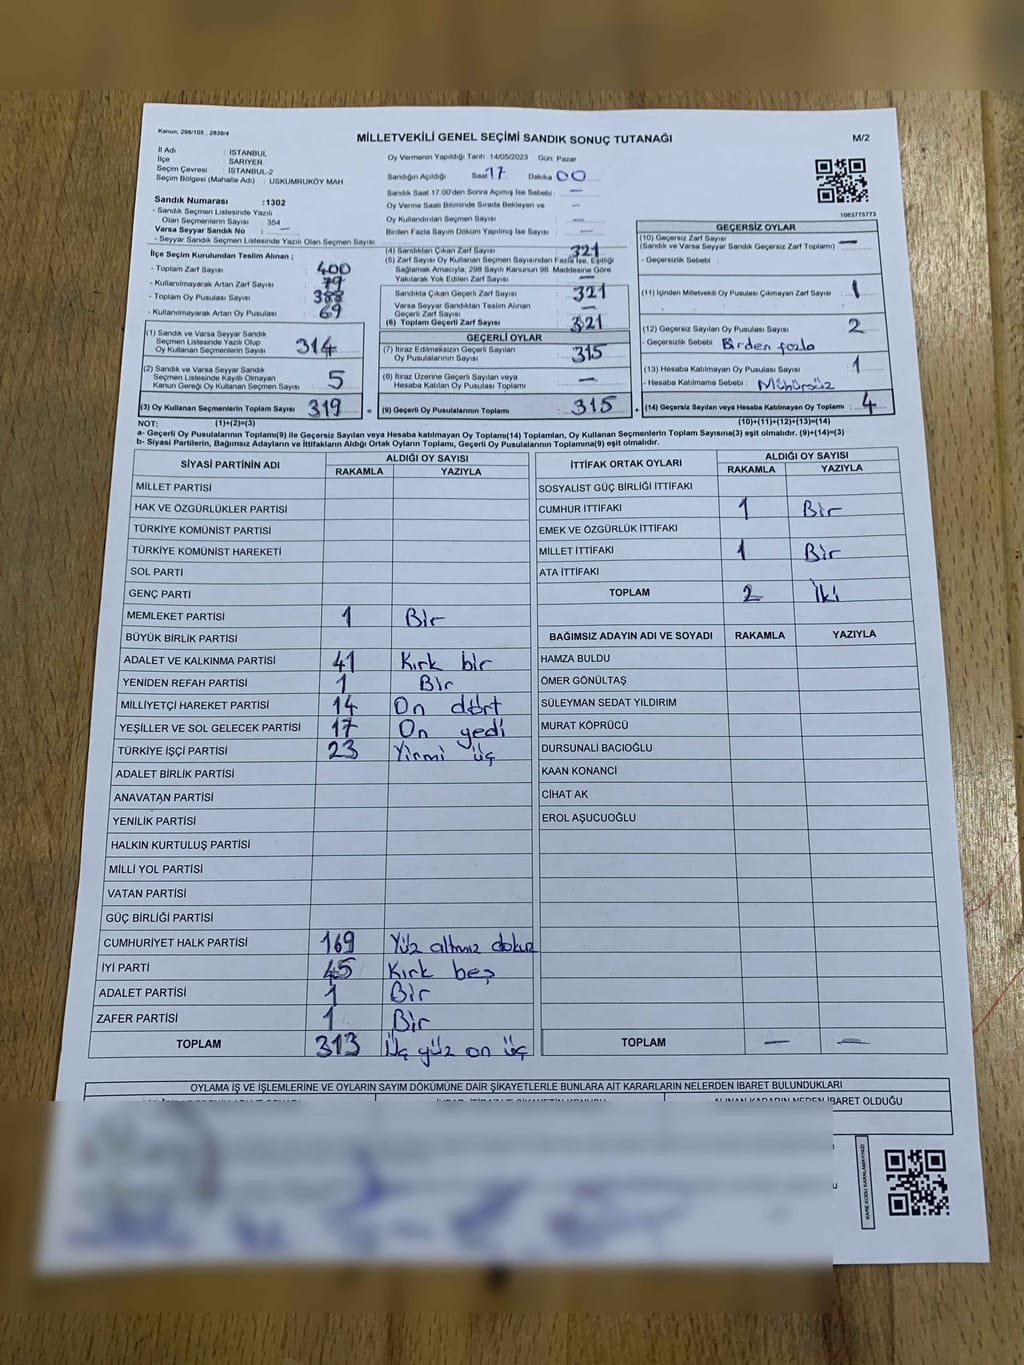 Kanun, 298/105 , 2839/4
MİLLETVEKİLİ GENEL SEÇİMİ SANDIK SONUÇ TUTANAĞI
M/2
İl Adı : İSTANBUL
İlçe : SARIYER
Seçim Çevresi : İSTANBUL-2
Seçim Bölgesi (Mahalle Adı) : USKUMRUKÖY MAH
Sandık Numarası :1302
- Sandık Seçmen Listesinde Yazılı
Olan Seçmenlerin Sayısı : 354
Varsa Seyyar Sandık No : —
- Seyyar Sandık Seçmen Listesinde Yazılı Olan Seçmen Sayısı
Oy Vermenin Yapıldığı Tarih :14/05/2023 Gün: Pazar
Sandığın Açıldığı Saat 17 Dakika 00
Sandık Saat 17:00'den Sonra Açımış İse Sebebi : —
Oy Verme Saati Bitiminde Sırada Bekleyen ve : —
Oy Kullandırılan Seçmen Sayısı : —
Birden Fazla Sayım Döküm Yapılmış İse Sayısı : —
1063775773
İlçe Seçim Kurulundan Teslim Alınan ;
- Toplam Zarf Sayısı : 400
- Kullanılmayarak Artan Zarf Sayısı : 79
- Toplam Oy Pusulası Sayısı : 388
- Kullanılmayarak Artan Oy Pusulası : 69
(1) Sandık ve Varsa Seyyar Sandık
Seçmen Listesinde Yazılı Olup
Oy Kullanan Seçmenlerin Sayısı : 314
(2) Sandık ve Varsa Seyyar Sandık
Seçmen Listesinde Kayıtlı Olmayan
Kanun Gereği Oy Kullanan Seçmen Sayısı : 5
(3) Oy Kullanan Seçmenlerin Toplam Sayısı : 319
(1)+(2)=(3)
(4) Sandıktan Çıkan Zarf Sayısı : 321
(5) Zarf Sayısı Oy Kullanan Seçmen Sayısından Fazla İse, Eşitliği
Sağlamak Amacıyla, 298 Sayılı Kanunun 98. Maddesine Göre
Yakılarak Yok Edilen Zarf Sayısı : —
Sandıkta Çıkan Geçerli Zarf Sayısı : 321
Varsa Seyyar Sandıktan Teslim Alınan
Geçerli Zarf Sayısı : —
(6) Toplam Geçerli Zarf Sayısı : 321
GEÇERLİ OYLAR
(7) İtiraz Edilmeksizin Geçerli Sayılan
Oy Pusulalarının Sayısı : 315
(8) İtiraz Üzerine Geçerli Sayılan veya
Hesaba Katılan Oy Pusulası Toplamı : —
= (9) Geçerli Oy Pusulalarının Toplamı : 315
GEÇERSİZ OYLAR
(10) Geçersiz Zarf Sayısı
(Sandık ve Varsa Seyyar Sandık Geçersiz Zarf Toplamı) : —
- Geçersizlik Sebebi :
(11) İçinden Milletvekili Oy Pusulası Çıkmayan Zarf Sayısı : 1
(12) Geçersiz Sayılan Oy Pusulası Sayısı : 2
- Geçersizlik Sebebi : Birden fazla
(13) Hesaba Katılmayan Oy Pusulası Sayısı : 1
- Hesaba Katılmama Sebebi : Mühürsüz
+ (14) Geçersiz Sayılan veya Hesaba Katılmayan Oy Toplamı : 4
(10)+(11)+(12)+(13)=(14)
NOT:
a- Geçerli Oy Pusulalarının Toplamı(9) ile Geçersiz Sayılan veya Hesaba katılmayan Oy Toplamı(14) Toplamları, Oy Kullanan Seçmenlerin Toplam Sayısına(3) eşit olmalıdır. (9)+(14)=(3)
b- Siyasi Partilerin, Bağımsız Adayların ve İttifakların Aldığı Ortak Oyların Toplamı, Geçerli Oy Pusulalarının Toplamına(9) eşit olmalıdır.
SİYASİ PARTİNİN ADI ALDIĞI OY SAYISI
RAKAMLA YAZIYLA
MİLLET PARTİSİ
HAK VE ÖZGÜRLÜKLER PARTİSİ
TÜRKİYE KOMÜNİST PARTİSİ
TÜRKİYE KOMÜNİST HAREKETİ
SOL PARTİ
GENÇ PARTİ
MEMLEKET PARTİSİ 1 Bir
BÜYÜK BİRLİK PARTİSİ
ADALET VE KALKINMA PARTİSİ 41 Kırk bir
YENİDEN REFAH PARTİSİ 1 Bir
MİLLİYETÇİ HAREKET PARTİSİ 14 On dört
YEŞİLLER VE SOL GELECEK PARTİSİ 17 On yedi
TÜRKİYE İŞÇİ PARTİSİ 23 Yirmi üç
ADALET BİRLİK PARTİSİ
ANAVATAN PARTİSİ
YENİLİK PARTİSİ
HALKIN KURTULUŞ PARTİSİ
MİLLİ YOL PARTİSİ
VATAN PARTİSİ
GÜÇ BİRLİĞİ PARTİSİ
CUMHURİYET HALK PARTİSİ 169 Yüz altmış dokuz
İYİ PARTİ 45 Kırk beş
ADALET PARTİSİ 1 Bir
ZAFER PARTİSİ 1 Bir
TOPLAM 313 Üç yüz on üç
İTTİFAK ORTAK OYLARI ALDIĞI OY SAYISI
RAKAMLA YAZIYLA
SOSYALİST GÜÇ BİRLİĞİ İTTİFAKI
CUMHUR İTTİFAKI 1 Bir
EMEK VE ÖZGÜRLÜK İTTİFAKI
MİLLET İTTİFAKI 1 Bir
ATA İTTİFAKI
TOPLAM 2 İki
BAĞIMSIZ ADAYIN ADI VE SOYADI RAKAMLA YAZIYLA
HAMZA BULDU
ÖMER GÖNÜLTAŞ
SÜLEYMAN SEDAT YILDIRIM
MURAT KÖPRÜCÜ
DURSUNALİ BACIOĞLU
KAAN KONANCİ
CİHAT AK
EROL AŞUCUOĞLU
TOPLAM — —
OYLAMA İŞ VE İŞLEMLERİNE VE OYLARIN SAYIM DÖKÜMÜNE DAİR ŞİKAYETLERLE BUNLARA AİT KARARLARIN NELERDEN İBARET BULUNDUKLARI
ALINAN KARARIN NEDEN İBARET OLDUĞU
KARE KODU KARALAMAYINIZ!